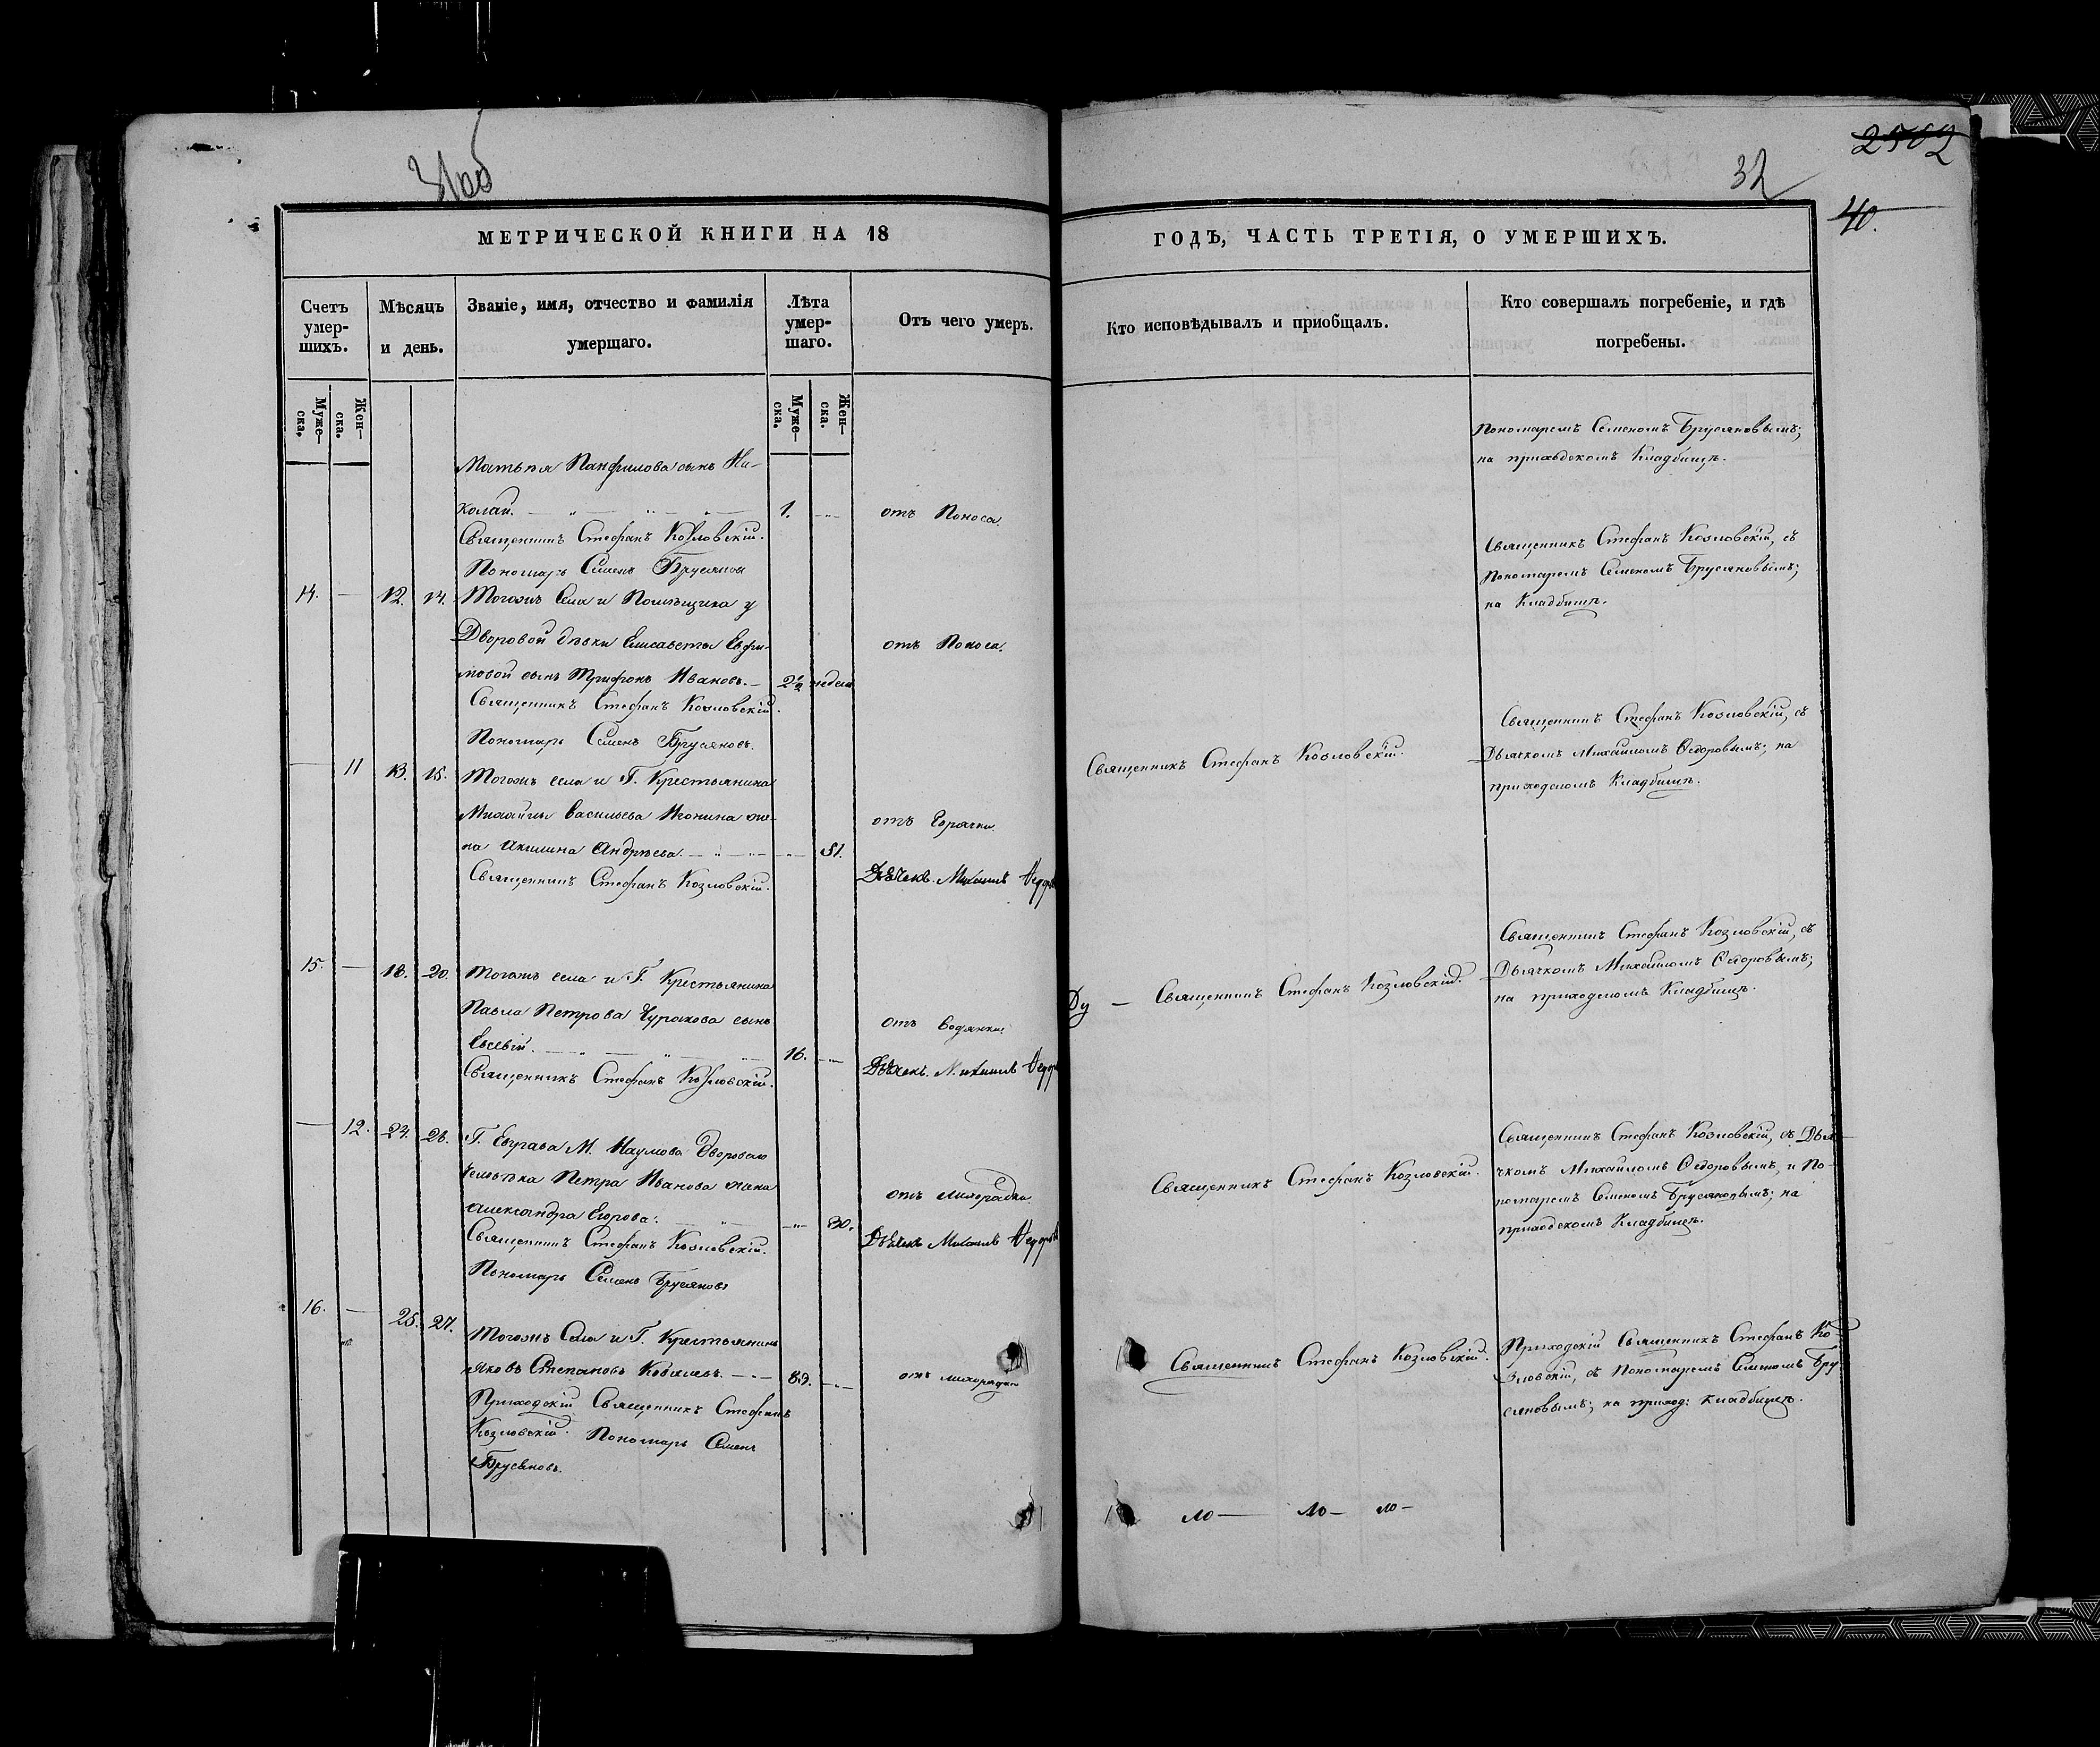 31об
МЕТРИЧЕСКОЙ КНИГИ НА 18
Счетъ умер-шихъ.
Мѣсяцъ и день.
Званіе, имя, отчество и фамилія умершаго.
Лѣта умер-шаго.
Отъ чего умеръ.
Муже-ска.
Жен-ска.
Муже-ска.
Жен-ска.
Матвѣя Панфилова сынъ Ни-
колай. 1. отъ Поноса.
Священникъ Стефанъ Козловскій.
Пономарь Семенъ Брусянов
14. — 12. 14. Тогожъ Села и Помѣщика у
Дворовой дѣвки Елисаветы Евфи-
мовой сынъ Трифонъ Ивановъ. 2½ недели отъ Поноса.
Священникъ Стефанъ Козловскій.
Пономарь Семенъ Брусяновъ.
— 11 13. 15. Тогожъ села и Г. Крестьянина
Михайлы Васильева жена Акилина Андрѣева. 51. отъ Горячки.
Священникъ Стефанъ Козловскій.
Дьячекъ Михаилъ Ѳедоровъ
15. — 18. 20. Тогожъ села и Г. Крестьянина
Павла Петрова Чуракова сынъ
Евсевій. 16. отъ Водянки.
Священникъ Стефанъ Козловскій.
Дьячекъ Михаилъ Ѳедоров
— 12. 24. 26. Г. Евграфа М. Наумова Дворового
человѣка Петра Иванова жена
Александра Егорова. 30. отъ лихорадки
Священникъ Стефанъ Козловскій.
Дьячекъ Михаилъ Ѳедоровъ
Пономарь Семенъ Брусяновъ
16. — 25. 27. Тогожъ Села и Г. Крестьянинъ
Яковъ Степановъ 89. отъ лихорадки
Приходскій Священникъ Стефанъ
Козловскій. Пономарь Семенъ
Брусяновъ.
2502
32
40.
ГОДЪ, ЧАСТЬ ТРЕТІЯ, О УМЕРШИХЪ.
Кто исповѣдывалъ и приобщалъ.
Кто совершалъ погребеніе, и гдѣ погребены.
Пономаремъ Семеномъ Брусяновымъ;
на приходскомъ Кладбищѣ.
Священникъ Стефанъ Козловскій, съ
Пономаремъ Семеномъ Брусяновымъ;
на Кладбищѣ.
Священникъ Стефанъ Козловскій.
Священникъ Стефанъ Козловскій, съ
Дьячкомъ Михайломъ Ѳедоровымъ; на
приходскомъ Кладбищѣ.
Ду — Священникъ Стефанъ Козловскій.
Священникъ Стефанъ Козловскій, съ
Дьячкомъ Михайломъ Ѳедоровымъ;
на приходскомъ Кладбищѣ.
Священникъ Стефанъ Козловскій.
Священникъ Стефанъ Козловскій, съ Дья-
чкомъ Михайломъ Ѳедоровымъ, и По-
номаремъ Семеномъ Брусяновымъ; на
приходскомъ Кладбищѣ.
Священникъ Стефанъ Козловскій.
Приходскій Священникъ Стефанъ Ко-
зловскій, съ Пономаремъ Семеномъ Бру-
сяновымъ; на приход: кладбищѣ.